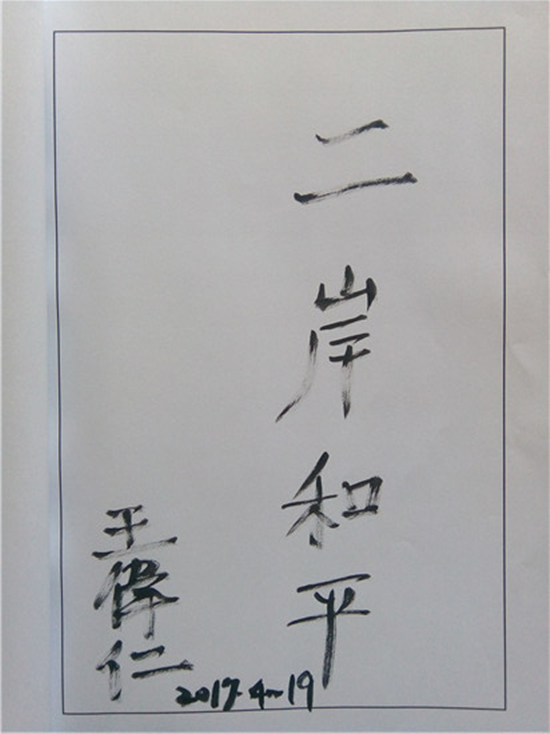 二岸和平
王偉仁
2017-4-19